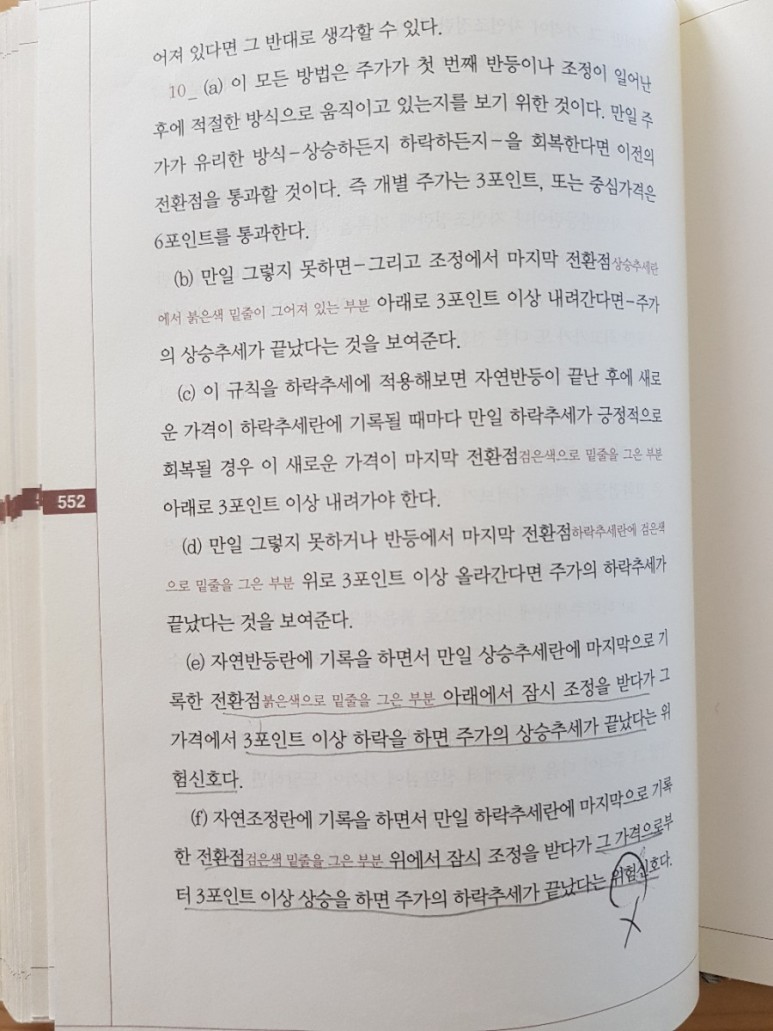 어져 있다면 그 반대로 생각할 수 있다.
10_ (a) 이 모든 방법은 주가가 첫 번째 반등이나 조정이 일어난
후에 적절한 방식으로 움직이고 있는지를 보기 위한 것이다. 만일 주
가가 유리한 방식-상승하든지 하락하든지-을 회복한다면 이전의
전환점을 통과할 것이다. 즉 개별 주가는 3포인트, 또는 중심가격은
6포인트를 통과한다.
(b) 만일 그렇지 못하면-그리고 조정에서 마지막 전환점상승추세란
에서 붉은색 밑줄이 그어져 있는 부분 아래로 3포인트 이상 내려간다면-주가
의 상승추세가 끝났다는 것을 보여준다.
(c) 이 규칙을 하락추세에 적용해보면 자연반등이 끝난 후에 새로
운 가격이 하락추세란에 기록될 때마다 만일 하락추세가 긍정적으로
회복될 경우 이 새로운 가격이 마지막 전환점검은색으로 밑줄을 그은 부분
아래로 3포인트 이상 내려가야 한다.
552
(d) 만일 그렇지 못하거나 반등에서 마지막 전환점하락추세란에 검은색
으로 밑줄을 그은 부분 위로 3포인트 이상 올라간다면 주가의 하락추세가
끝났다는 것을 보여준다.
(e) 자연반등란에 기록을 하면서 만일 상승추세란에 마지막으로 기
록한 전환점붉은색으로 밑줄을 그은 부분 아래에서 잠시 조정을 받다가 그
가격에서 3포인트 이상 하락을 하면 주가의 상승추세가 끝났다는 위
험신호다.
(f) 자연조정란에 기록을 하면서 만일 하락추세란에 마지막으로 기록
한 전환점검은색 밑줄을 그은 부분 위에서 잠시 조정을 받다가 그 가격으로부
터 3포인트 이상 상승을 하면 주가의 하락추세가 끝났다는 위험신호다.
X